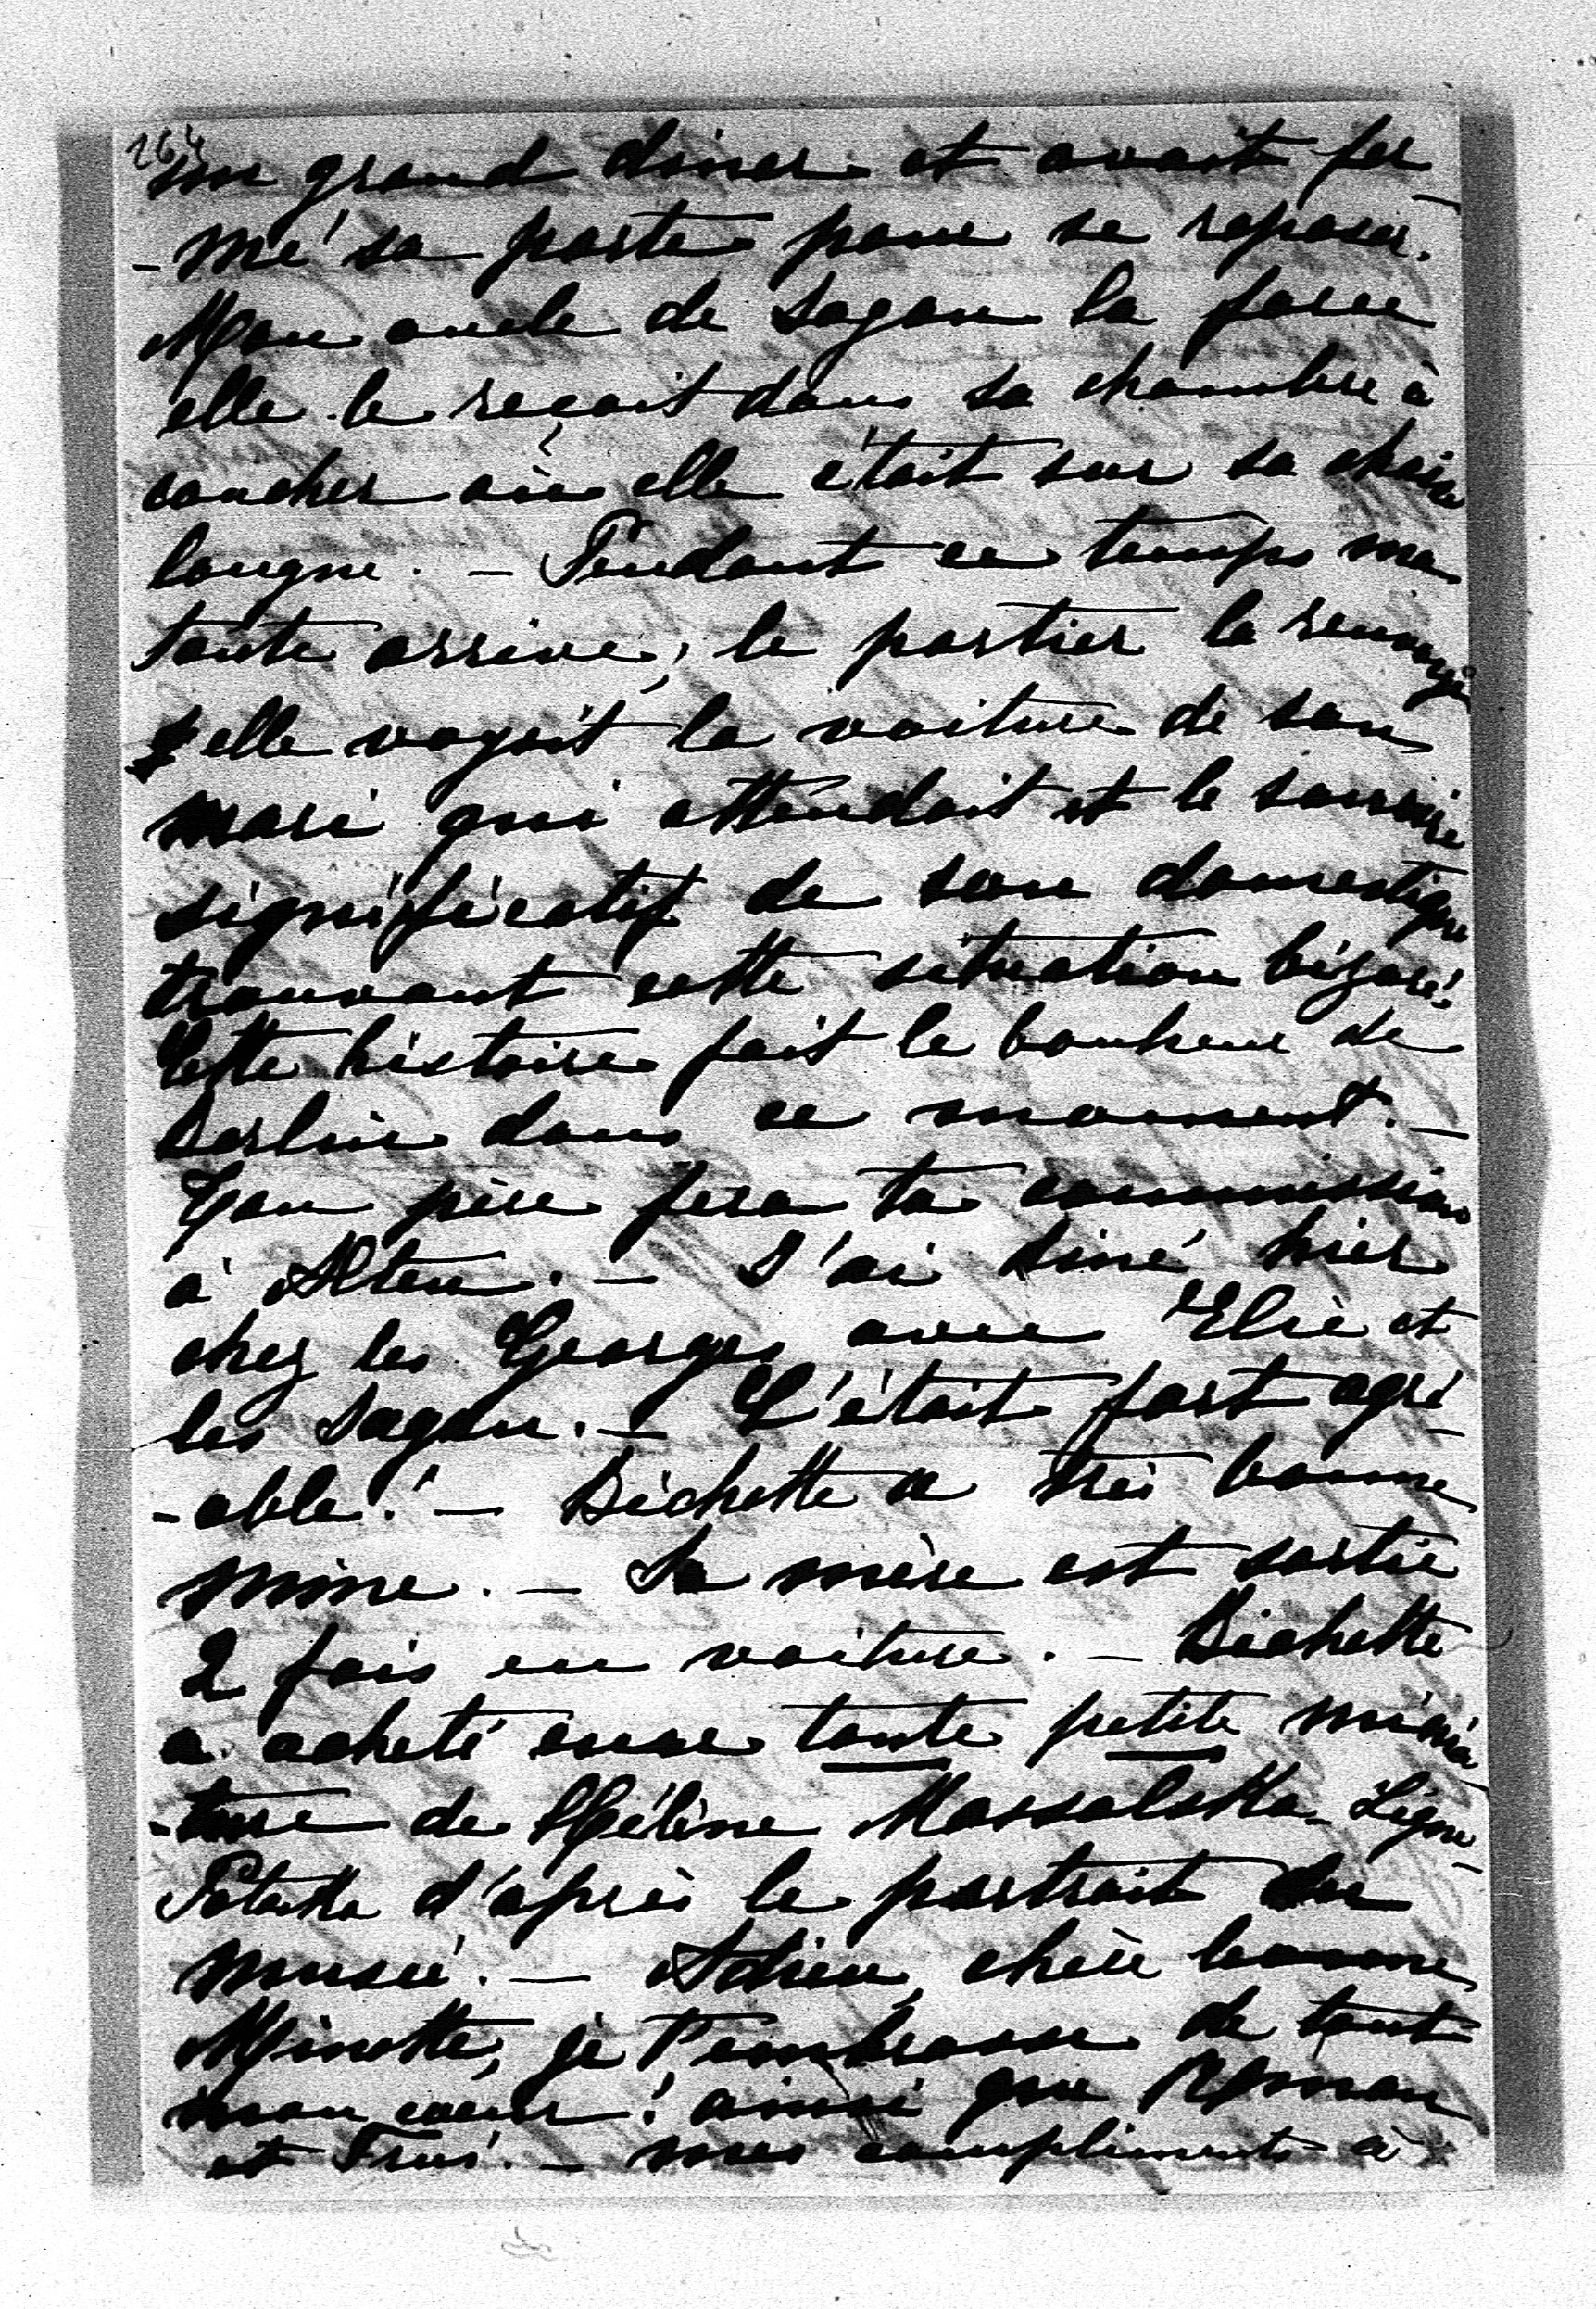 264
un grand diner et avait fer-
-mé sa porte pour se reposer.
Mon oncle de Sagan la force
elle le reçoit dans sa chambre à
coucher où elle était sur sa chaise
longue. – Pendant ce temps ma
tante arrive, le portier la renvoye
& elle voyait la voiture de son
mari qui attendait et le sourire
significatif de son domestique
trouvant cette situation bizare.
Cette histoire fait le bonheur de
Berlin dans ce moment. –
Ton père fera ta commission
à Alten. – J'ai diné hier
chez les Georges avec Elie et
les Sagan. – C'était fort agré-
-able! – Bichette a très bonne
mine. – Sa mère est sortie
2 fois en voiture. – Bichette
a acheté une toute petite minia-
-ture de Hélène Massalska-Ligne-
Potocka d'après le portrait du
musée. – Adieu, chère bonne
Minette, je t'embrasse de tout
mon cœur! ainsi que Roman
et – mes compliments à